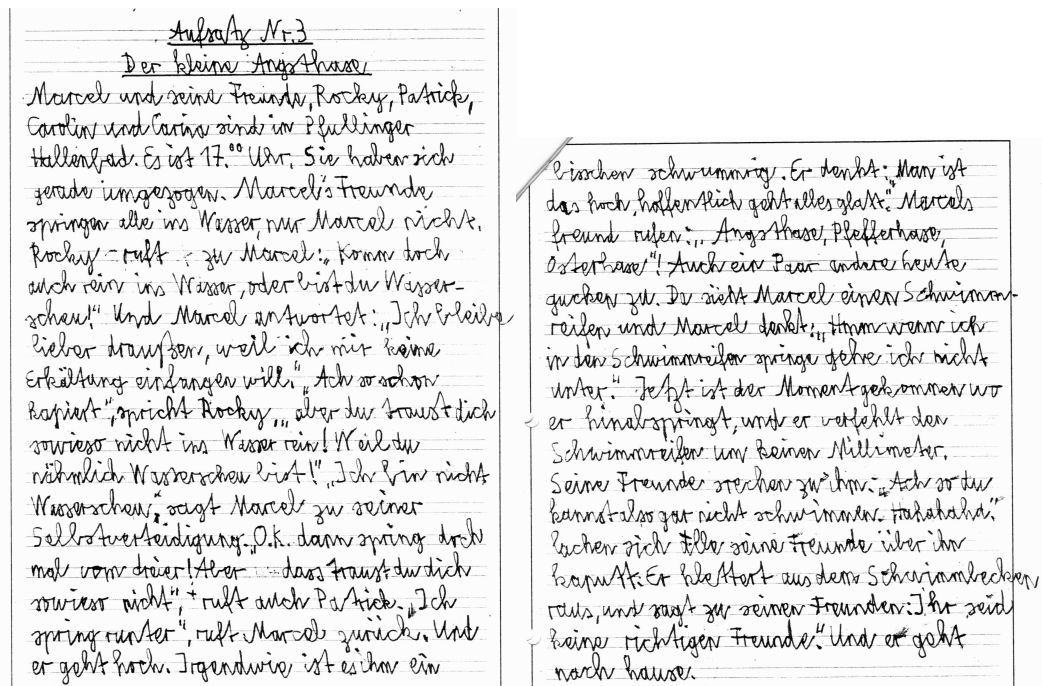 Aufsatz Nr.3
Der kleine Angsthase
Marcel und seine Freunde, Rocky, Patrick,
Carolin und Carina sind im Pfullinger
Hallenbad. Es ist 17.⁰⁰ Uhr. Sie haben sich
gerade umgezogen. Marcel's Freunde
springen alle ins Wasser, nur Marcel nicht.
Rocky ruft zu Marcel: „Komm doch
auch rein ins Wasser, oder bist du Wasser-
scheu!" Und Marcel antwortet: „Ich bleibe
lieber draußen, weil ich mir keine
Erkältung einfangen will." „Ach so schon
kapiert", spricht Rocky, „aber du traust dich
sowieso nicht ins Wasser rein! Weil du
nähmlich Wasserscheu bist!" „Ich bin nicht
Wasserscheu", sagt Marcel zu seiner
Selbstverteidigung. „O.K. dann spring doch
mal vom dreier! Aber dass traust du dich
sowieso nicht", ruft auch Patrick. „Ich
spring runter", ruft Marcel zurück. Und
er geht hoch. Irgendwie ist es ihm ein
bisschen schwummrig. Er denkt: „Man ist
das hoch, hoffentlich geht alles glatt." Marcels
freund rufen: „Angsthase, Pfefferhase,
Osterhase"! Auch ein Paar andere heute
gucken zu. Da sieht Marcel einen Schwimm-
reifen und Marcel denkt: „Hmm wenn ich
in den Schwimmreifen springe gehe ich nicht
unter." Jetzt ist der Moment gekommen wo
er hinabspringt, und er verfehlt den
Schwimmreifen um keinen Millimeter.
Seine Freunde srechen zu ihm: „Ach so du
kannst also gar nicht schwimmen. Hahahaha."
lachen sich Alle seine Freunde über ihn
kaputt. Er klettert aus dem Schwimmbecken
raus, und sagt zu seinen Freunden: Ihr seid
keine richtigen Freunde." Und er geht
nach hause.